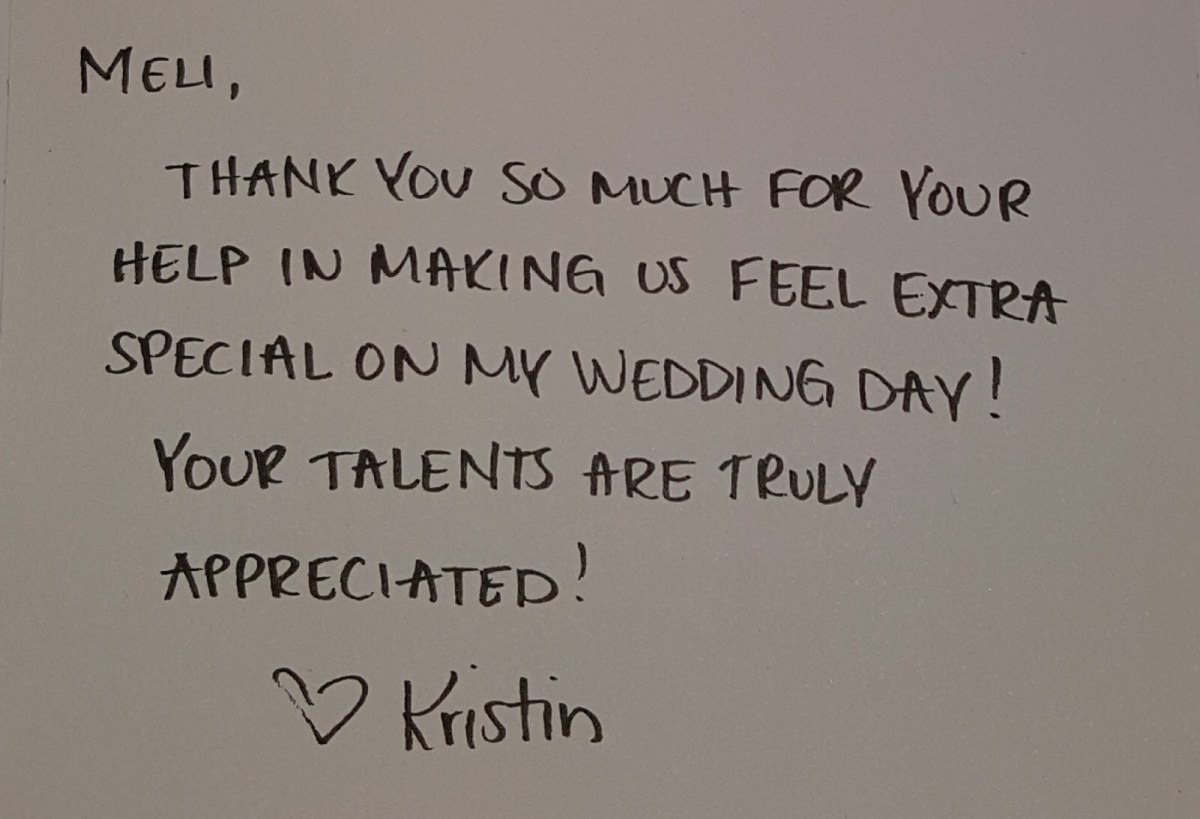 MELI,
THANK YOU SO MUCH FOR YOUR
HELP IN MAKING US FEEL EXTRA
SPECIAL ON MY WEDDING DAY!
YOUR TALENTS ARE TRULY
APPRECIATED!
♡ Kristin